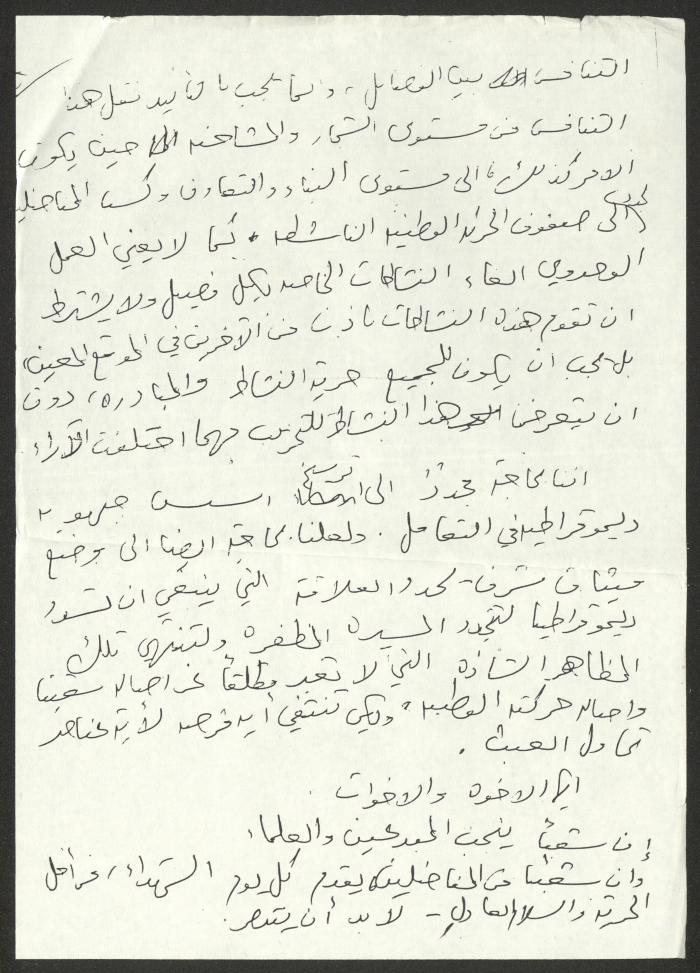 التنافس بين الفصائل، وانما يجب بالتأكيد نقل هذا
التنافس من مستوى الشجار والمشاحنة حين يكون
الامر كذلك، الى مستوى البناء والتعاون وكسب المناضلين
الجدد الى صفوف الحركة الوطنية الناشطة. كما لا يعني العمل
الوحدوي الغاء النشاطات الخاصة بكل فصيل ولا يشترط
ان تقوم هذه النشاطات باذن من الآخرين في الموقع المعين،
بل يجب ان يكون للجميع حرية النشاط والمبادرة، دون
ان يتعرض هذا النشاط للتخريب مهما اختلفت الآراء
اننا بحاجة مجدداً الى ترسيخ اسس جبهوية
ديموقراطية في التعامل. ولعلنا بحاجة ايضا الى وضع
ميثاق شرف يحدد العلاقة التي ينبغي ان تسود
ديموقراطيا لتتجدد المسيرة المظفرة ولتنتهي تلك
المظاهر الشاذة التي لا تعبر مطلقاً عن اصالة شعبنا
واصالة حركته الوطنية، ولكي تنتفي أية فرصة لأية عناصر
تحاول العبث.
ايها الاخوة والاخوات.
إن شعباً ينجب المبدعين والعلماء
وان شعبنا من المناضلين يقدم كل يوم الشهداء، من أجل
الحرية والسلام العادل - لا بد أن ينتصر.